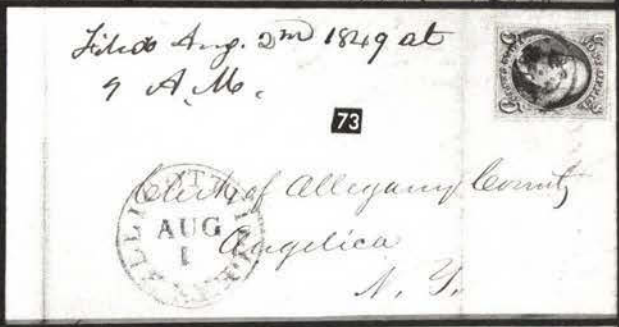 Filed Aug. 2nd 1849 at
9 A.M.
73
Clerk of Allegany County
AUG
1
Angelica
N. Y.